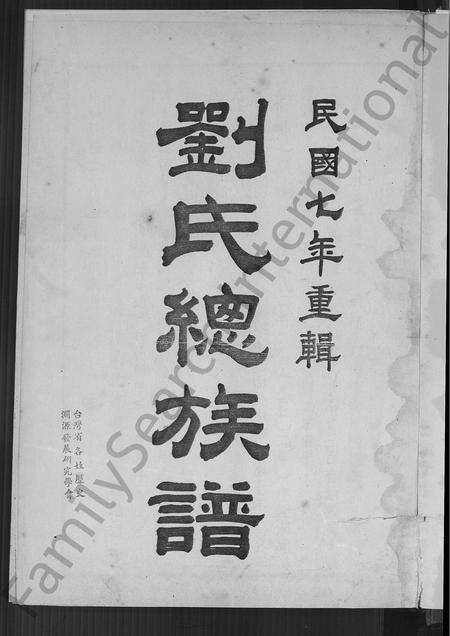 民國七年重輯
劉氏總族譜
台灣省各姓歷史
淵源發展研究學會
FamilySearch International